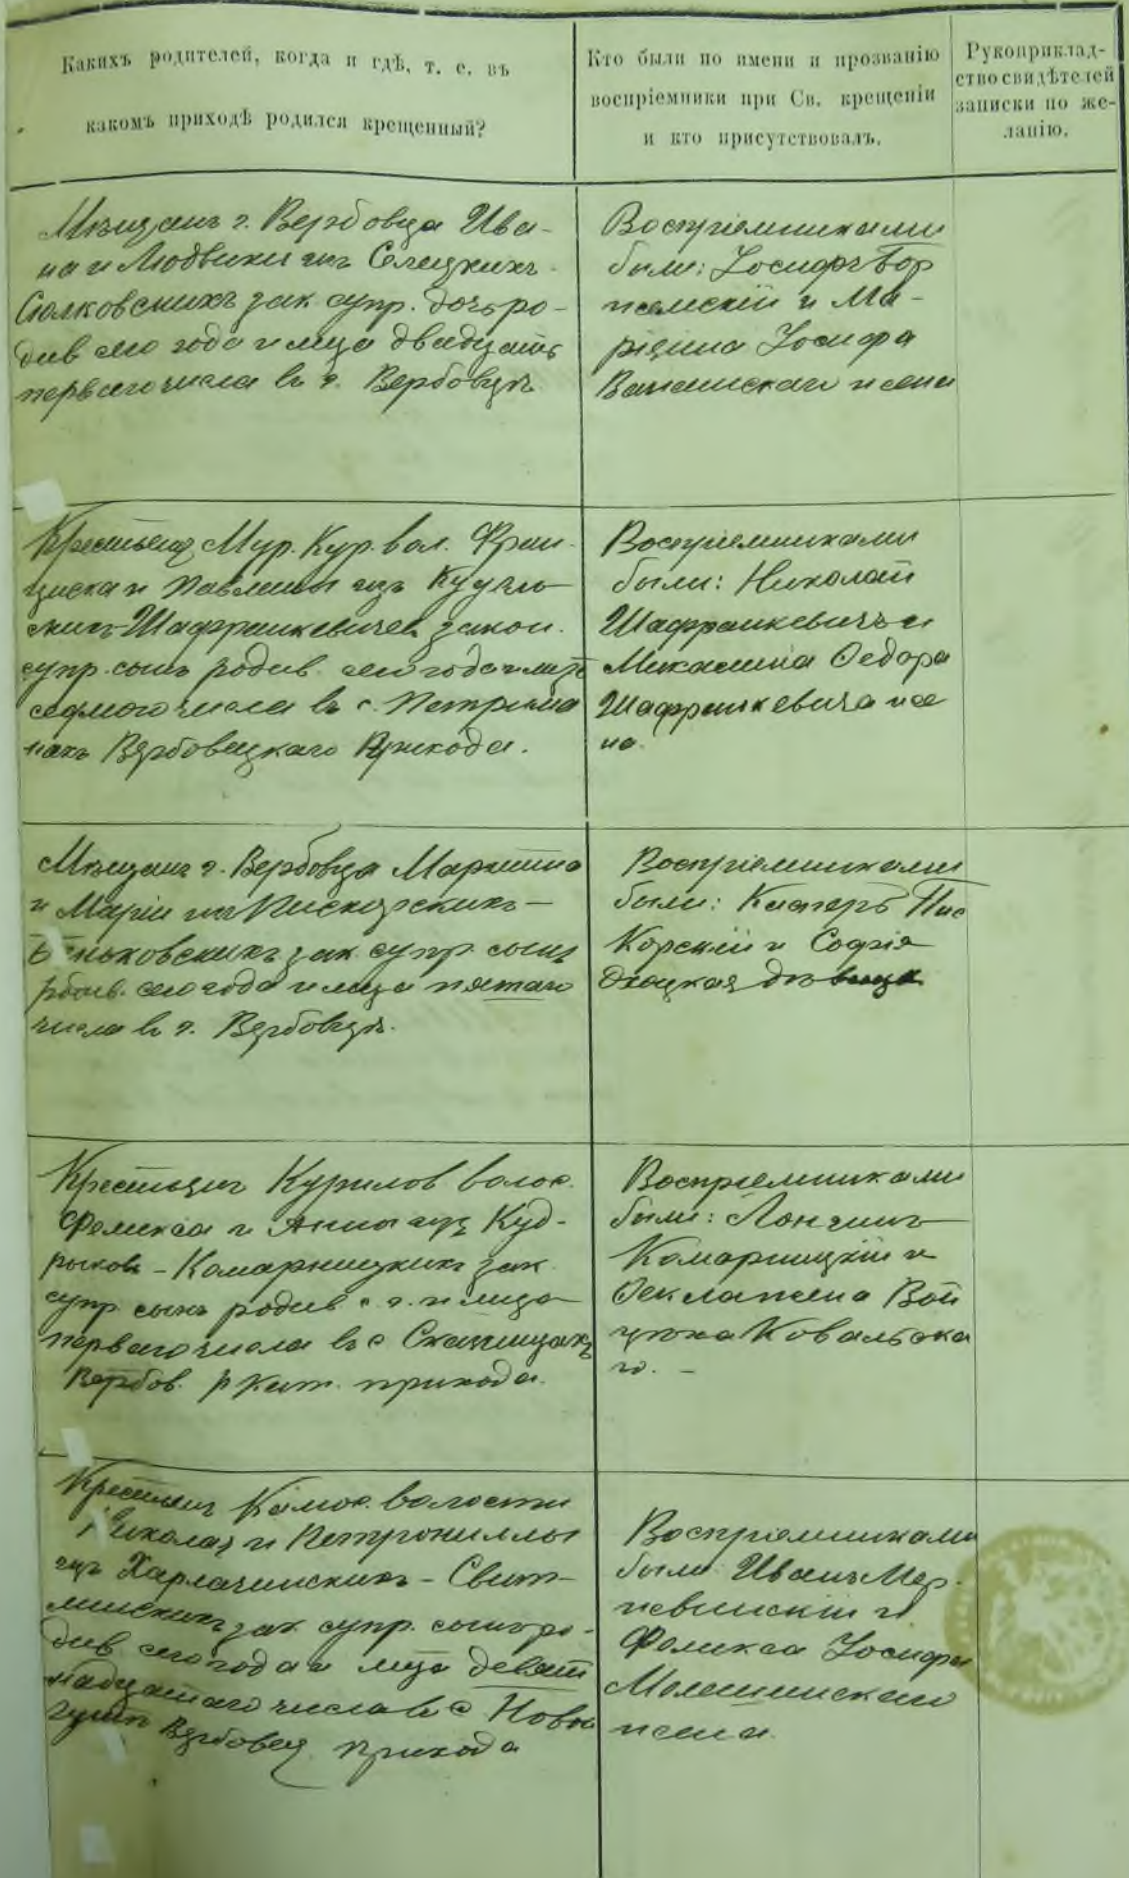 Какихъ родителей, когда и гдѣ, т. е. въ
какомъ приходѣ родился крещенный?
Кто были по имени и прозванію
воспріемники при Св. крещеніи
и кто присутствовалъ.
Рукоприклад-
ство свидѣтелей
записки по же-
ланію.
Мѣщанъ г. Вербовца Ива-
на и Людвики изъ Селецкихъ
зак. супр. дочь ро-
див. сего года и мца двадцать
перваго числа въ г. Вербовцѣ
Воспріемниками
были: Іосифъ
и Ма-
Іосифа
жена
Мур. Кур. вол. Фран-
циска и Павлины изъ
Шафранкевичей закон.
супр. сынъ родив. сего года и мца
седмого числа въ с.
Вербовецкаго прихода.
Воспріемниками
были: Николай
Шафранкевичъ и
Михалина Федора
Шафранкевича же
на.
Мѣщанъ г. Вербовца Мартина
и Маріи изъ Пискорскихъ –
зак. супр. сынъ
родив. сего года и мца пятаго
числа въ г. Вербовцѣ.
Воспріемниками
были: Касперъ Пис
корскій и Софія
дѣвица
Крестьянъ Курилов. волос.
Феликса и Анны изъ Куд-
рыковъ – Комарницкихъ зак.
супр. сынъ родив. с. г. и мца
перваго числа въ с.
Вербов. р. Кат. прихода.
Воспріемниками
были: Лонгинъ
Комарницкій и
Вой
цѣха Ковальска
го. –
Крестьянъ волости
Николая и Петрониллы
изъ Харлачинскихъ – Свит-
зак. супр. сынъ ро-
див. сего года и мца девят
надцатаго числа въ с.
Вербовец. прихода
Воспріемниками
были Иванъ
и
Іосифа
жена.